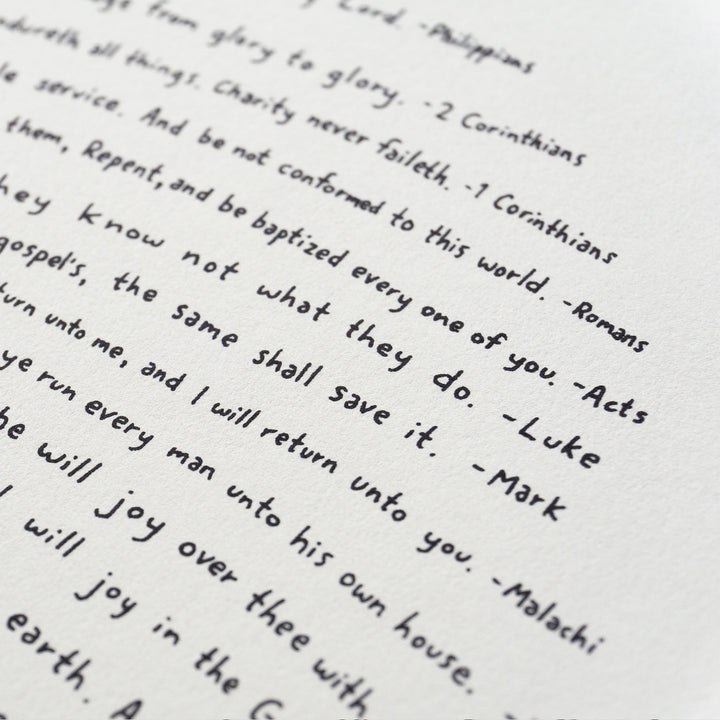 Lord. -Philippians
from glory to glory. -2 Corinthians
all things. Charity never faileth. -1 Corinthians
service. And be not conformed to this world. -Romans
them, Repent, and be baptized every one of you. -Acts
hey know not what they do. -Luke
gospel's, the same shall save it. -Mark
turn unto me, and I will return unto you. -Malachi
ye run every man unto his own house. -
he will joy over thee with
I will joy in the G
earth. A